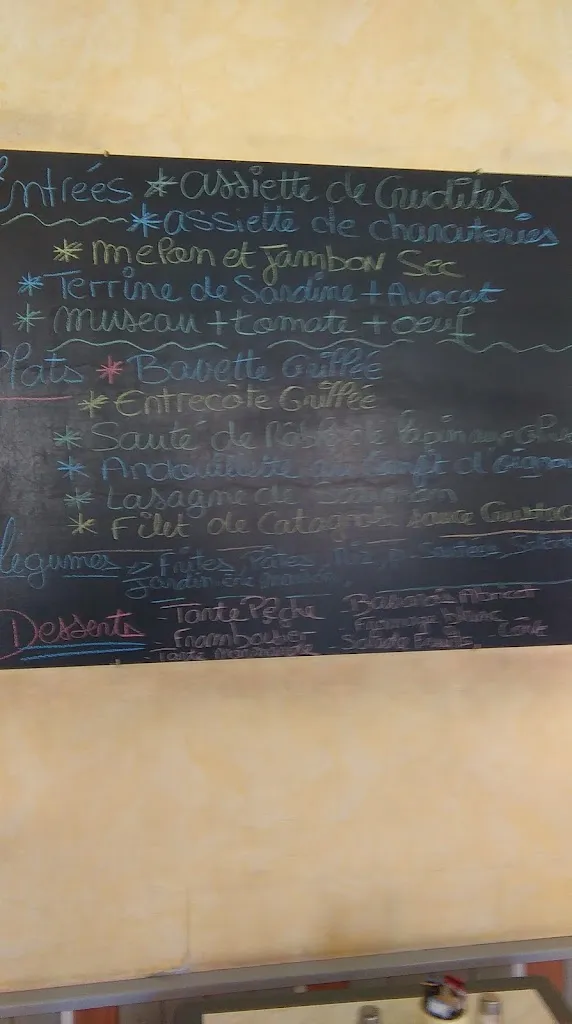 Entrées * assiette de Crudités
* assiette de charcuteries
* melon et Jambon Sec
* Terrine de Sardine + Avocat
* museau + tomate + oeuf
Plats * Bavette Grillée
* Entrecôte Grillée
* Sauté de Râble de lapin aux
* Andouillette au Confit d'oignon
* Lasagne de Saumon
* Filet de sauce
légumes → Frites, Pâtes, Riz, Sautées,
Jardinière maison
Desserts - Tarte Pêche - Bavarois Abricot
- Framboisier - Fromage Blanc
- Tarte - Salade